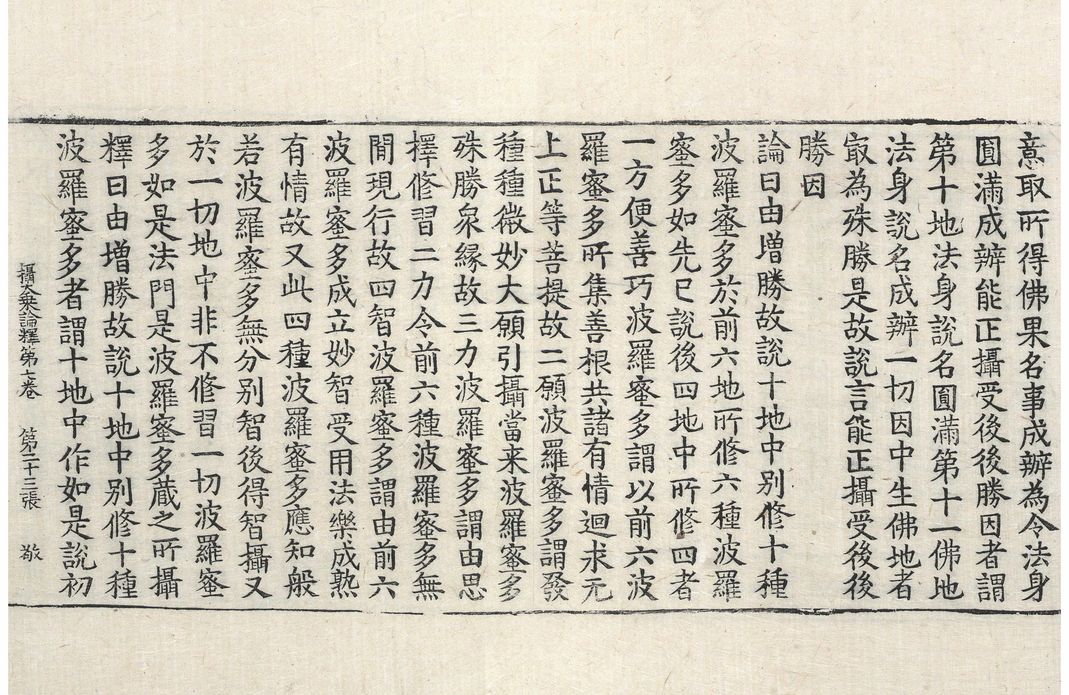 意取所得佛果名事成辦為令法身
圓滿成辦能正攝受後後勝因者謂
第十地法身說名圓滿第十一佛地
法身說名成辦一切因中生佛地者
㝡為殊勝是故說言能正攝受後後
勝因
論曰由增勝故說十地中別修十種
波羅蜜多於前六地所修六種波羅
蜜多如先已說後四地中所修四者
一方便善巧波羅蜜多謂以前六波
羅蜜多所集善根共諸有情迴求无
上正等菩提故二願波羅蜜多謂發
種種微妙大願引攝當来波羅蜜多
殊勝衆緣故三力波羅蜜多謂由思
擇修習二力令前六種波羅蜜多無
間現行故四智波羅蜜多謂由前六
波羅蜜多成立妙智受用法樂成熟
有情故又此四種波羅蜜多應知般
若波羅蜜多無分別智後得智攝又
於一切地中非不修習一切波羅蜜
多如是法門是波羅蜜多藏之所攝
釋曰由增勝故說十地中別修十種
波羅蜜多者謂十地中作如是說初
攝大乗論釋第七卷 第二十三張 敬